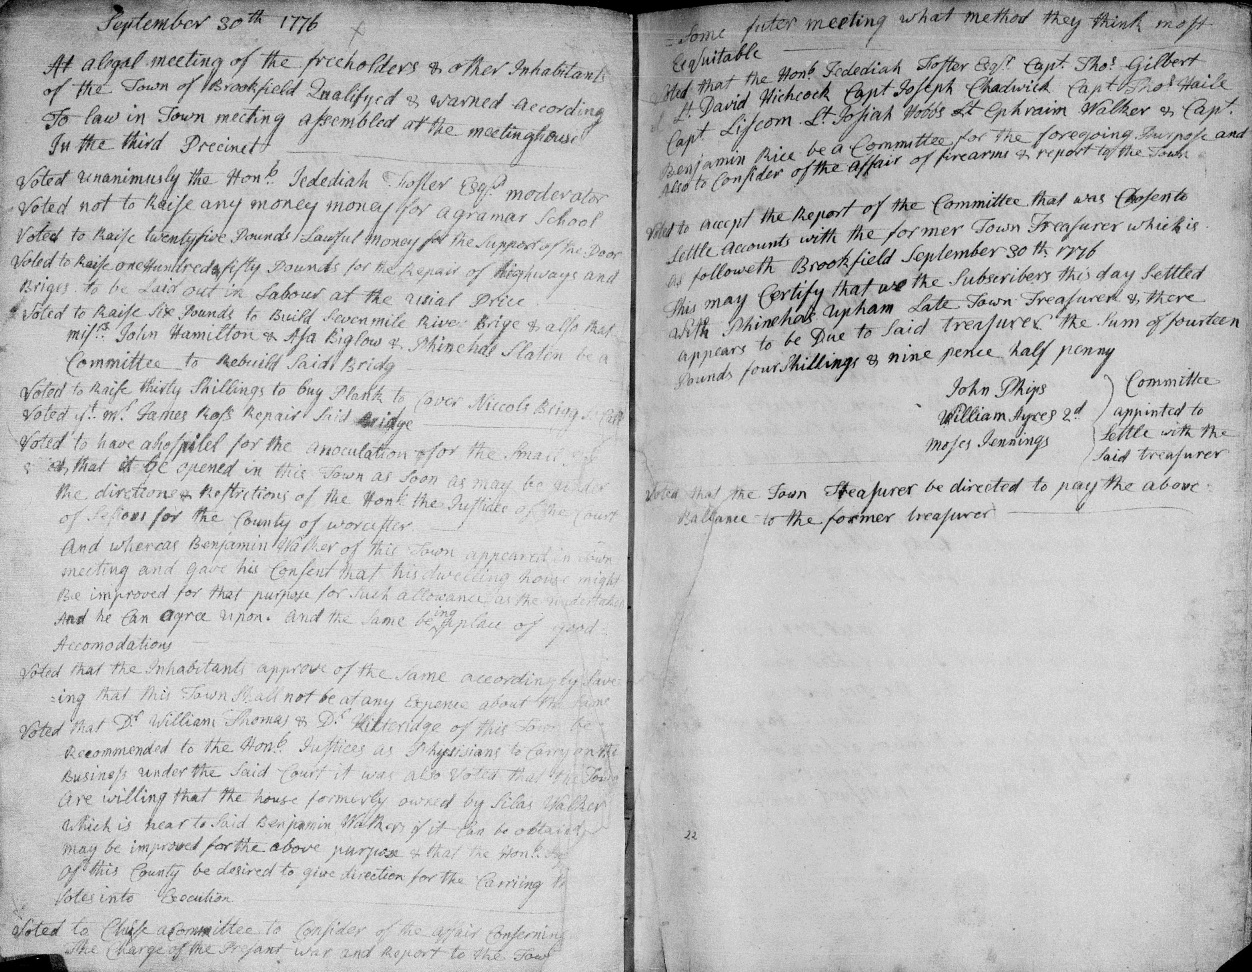 September 30th 1776
At a legal meeting of the freeholders & other Inhabitants
of the Town of Brookfield Qualifyed & warned according
To law in Town meeting assembled at the meetinghouse
In the third Precinct
Voted unanimusly the Honb. Jedediah Foster Esqr. moderator
Voted not to Raise any money money for a gramar School
Voted to Raise twentyfive Pounds Lawful money for the Support of the Poor
Voted to Raise one Hundred & fifty Pounds for the Repair of highways and
Briges to be Laid out in Labour at the usial Price
Voted to Raise Six Pounds to Build Sevenmile River Brige & also that
misrs. John Hamilton & Asa Biglow & Phinehas Slaten be a
Committee to Rebuild Said Bridg
Voted to Raise thirty Shillings to buy Plank to Cover Niccols Brigg
Voted yt. mr. James Ross Repair Said Bridge
Voted to have a hospitel for the anoculation for the Small
& that it be opened in this Town as Soon as may be under
the diretione & Restrictions of the Honb. the Justices of the Court
of Sesions for the County of worcister
And whereas Benjamin Walker of this Town appeared in Town
meeting and gave his Consent that his dwelling house might
Be improved for that purpose for Such allowance as the undertaker
And he Can agree upon. and the Same being a place of good
Accomodations
Voted that the Inhabitants approve of the Same accordingly Save
=ing that this Town Shall not be at any Expence about the Same
Voted that Dr. William Thomas & Dr. Kitteridge of this Town be
Recommended to the Honb. Justices as Physisians to Carry on the
Business under the Said Court it was also Voted that the Town
Are willing that the house formerly owned by Silas Walker
Which is near to Said Benjamin Walkers if it Can be obtained
may be improved for the above purpose & that the Honb.
Of this County be desired to give direction for the Carriing
Votes into Execution
Voted to Chuse a Committee to Consider of the affair Conserning
The Charge of the Presant war and Report to the Town
=Some futer meeting what method they think most
Eqsuitable
Voted that the Honb. Jedediah Foster Esqr. Capt. Thos. Gilbert
Lt. David Hichcock Capt Joseph Chadwick Capt Thos. Haile
Capt Liscom. Lt. Josiah Hobbs Lt Ephraim Walker & Capt.
Benjamin Rice be a Committee for the foregoing Purpose and
also to Consider of the affair of firearms & report to the Town
Voted to accept the Report of the Committee that was Chosen to
Settle Accounts with the former Town Treasurer which is
as followeth Brookfield September 30th 1776
This may Certify that we the Subscribers this day Settled
with Phinehas Upham Late Town Treasurer & there
appears to be Due to Said treasurer the Sum of fourteen
Pounds four Shillings & nine pence half penny
John Phips
William Ayres 2d
Moses Jennings
Committee
appinted to
Settle with the
Said treasurer
Voted that the Town Treasurer be directed to pay the above
Ballance to the former treasurer
22